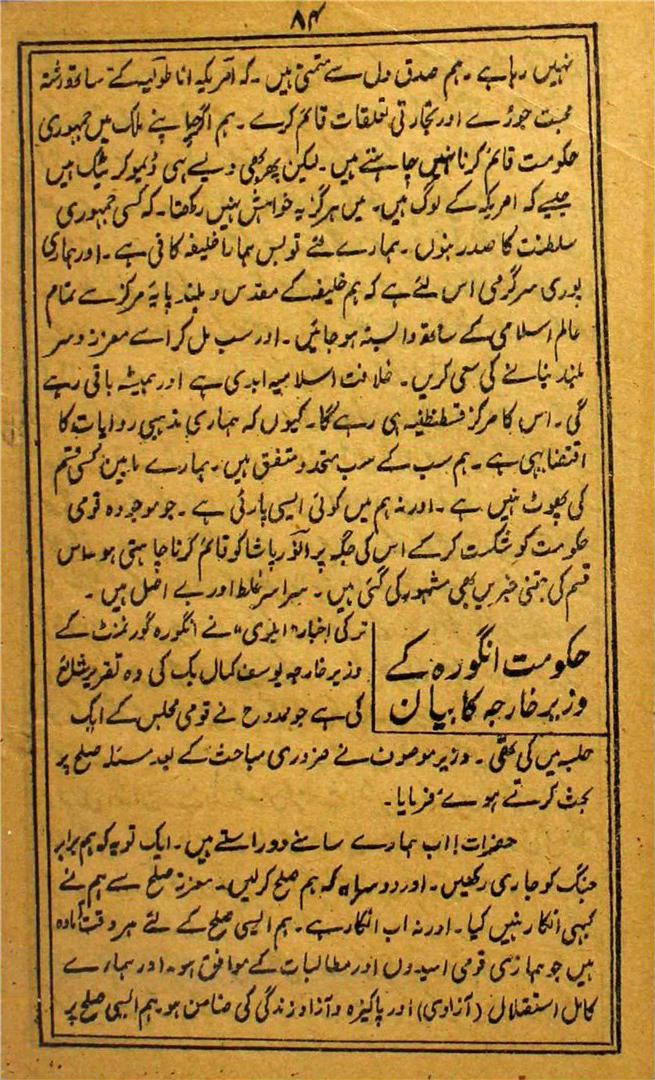 ۸۴
نہیں رہا ہے ۔ ہم صدق دل سے متمنی ہیں ۔ کہ امریکہ اناطولیہ کے ساتھ رشتہ
محبت جوڑے اور تجارتی تعلقات قائم کرے ۔ ہم اگرچہ اپنے ملک میں جمہوری
حکومت قائم کرنا نہیں چاہتے ہیں ۔ لیکن پھر بھی ویسے ہی ڈیموکریٹک ہیں
جیسے کہ امریکہ کے لوگ ہیں ۔ میں ہرگز یہ خواہش نہیں رکھتا ۔ کہ کسی جمہوری
سلطنت کا صدر بنوں ۔ ہمارے لئے تو بس ہمارا خلیفہ کافی ہے ۔ اور ہماری
پوری سرگرمی اس لئے ہے کہ ہم خلیفہ کے مقدس و بلند پایہ مرکز سے تمام
عالم اسلامی کے ساتھ وابستہ ہو جائیں ۔ اور سب مل کر اسے معزز و سر
بلند بنانے کی سعی کریں ۔ خلافت اسلامیہ ابدی ہے اور ہمیشہ باقی رہے
گی ۔ اس کا مرکز قسطنطنیہ ہی رہے گا ۔ کیوں کہ ہماری مذہبی روایات کا
اقتضا یہی ہے ۔ ہم سب کے سب متحد و متفق ہیں ۔ ہمارے مابین کسی قسم
کی پھوٹ نہیں ہے ۔ اور نہ ہم میں کوئی ایسی پارٹی ہے ۔ جو موجودہ قومی
حکومت کو شکست کر کے اس کی جگہ پر انور پاشا کو قائم کرنا چاہتی ہو ۔ اس
قسم کی جتنی خبریں بھی مشہور کی گئی ہیں ۔ سراسر غلط اور بے اصل ہیں ۔
حکومت انگورہ کے
وزیر خارجہ کا بیان
ترکی اخبار نے انگورہ گورنمنٹ کے
وزیر خارجہ یوسف کمال بک کی وہ تقریر شائع
کی ہے جو ممدوح نے قومی مجلس کے ایک
جلسہ میں کی تھی ۔ وزیر موصوف نے ضروری مباحث کے بعد مسئلہ صلح پر
بحث کرتے ہوئے فرمایا ۔
حضرات! اب ہمارے سامنے دو راستے ہیں ۔ ایک تو یہ کہ ہم برابر
جنگ کو جاری رکھیں ۔ اور دوسرا یہ کہ ہم صلح کرلیں ۔ معزز صلح سے ہم نے
کبھی انکار نہیں کیا ۔ اور نہ اب انکار ہے ۔ ہم ایسی صلح کے لئے ہر وقت آمادہ
ہیں جو ہماری قومی امیدوں اور مطالبات کے موافق ہو ۔ اور ہمارے
کامل استقلال (آزادی) اور پاکیزہ و آزاد زندگی کی ضامن ہو ۔ ہم ایسی صلح پر